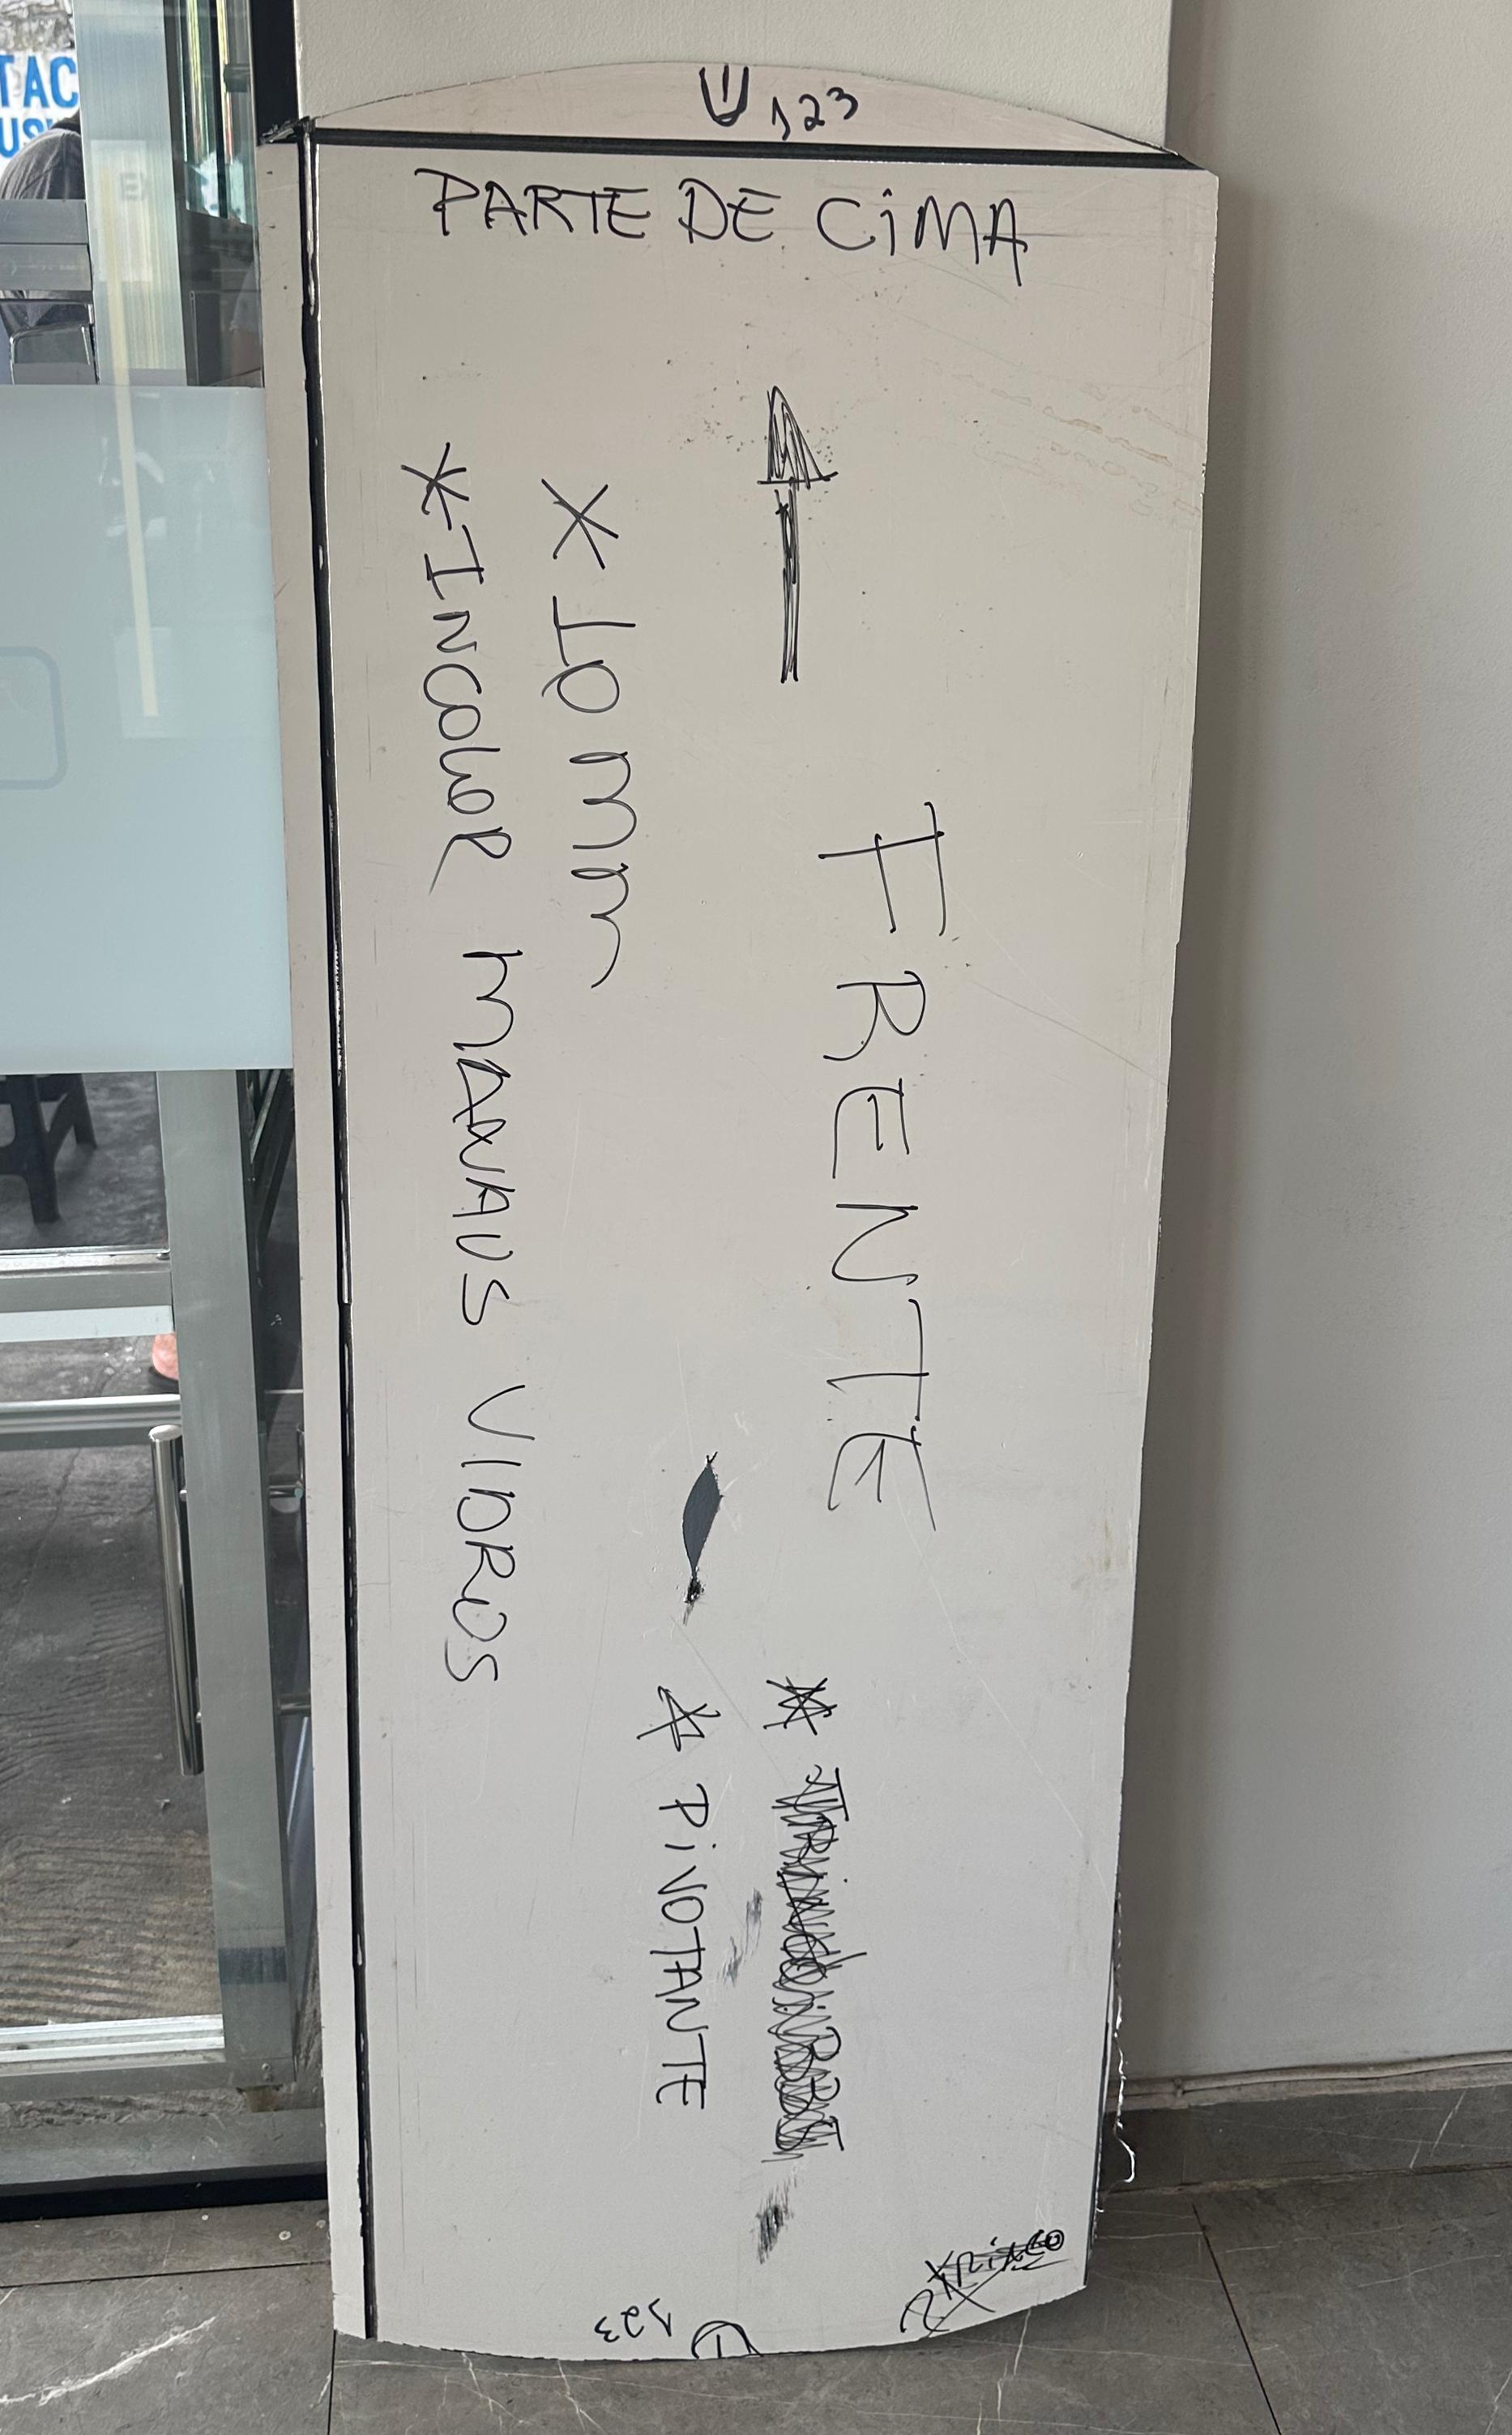 123
PARTE DE CiMA
FRENTE
* 10 mm
* INCOLOR MANAUS VIDROS
* PiVOTANTE
123